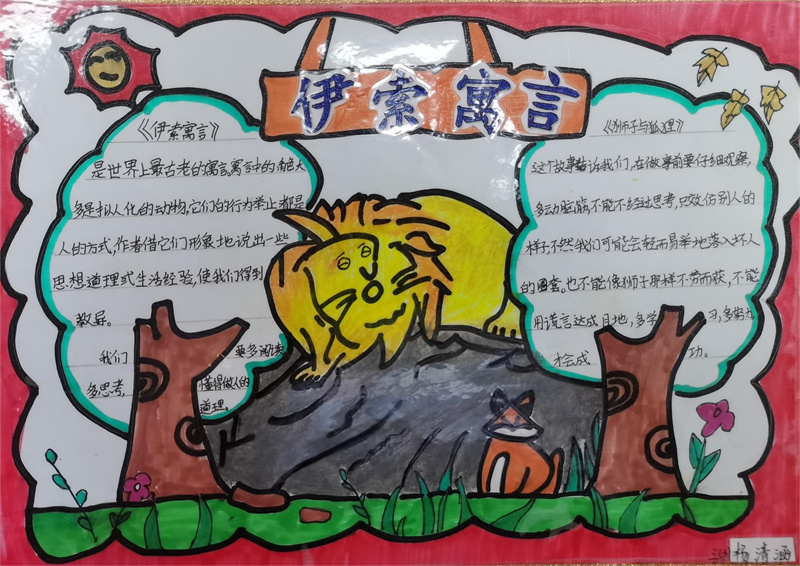 伊索寓言
《伊索寓言》
是世界上最古老的寓言,寓言中的角色大
多是拟人化的动物,它们的行为举止都是
人的方式,作者借它们形象地说出一些
思想道理或生活经验,使我们得到
教益。
我们 要多阅读
多思考, 懂得做人的
道理。
《狮子与狐狸》
这个故事告诉我们,在做事前要仔细观察,
多动脑筋,不能不经过思考,只效仿别人的
样子,不然我们可能会轻而易举地落入坏人
的圈套。也不能像狮子那样不劳而获,不能
用谎言达成目地,多学 习,多努力
才会成 功。
杨清涵